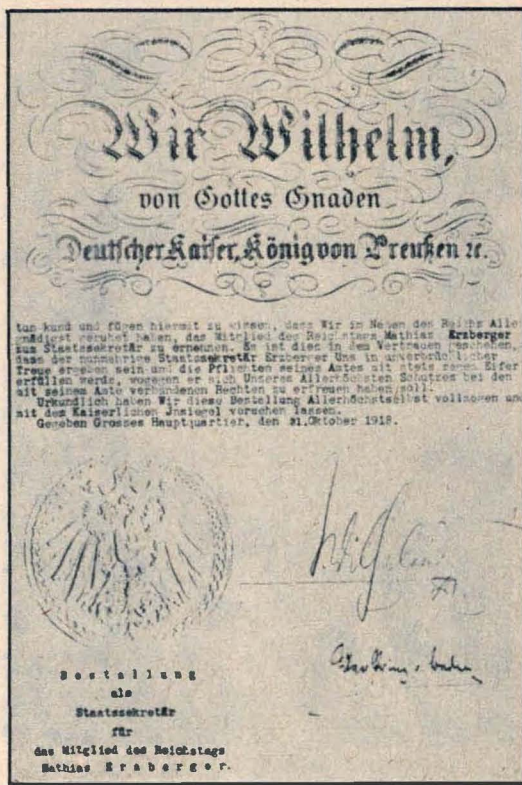 Wir Wilhelm,
von Gottes Gnaden
Deutscher Kaiser, König von Preußen ꝛc.
tun kund und fügen hiermit zu wissen, dass Wir im Namen des Reichs Aller
gnädigst geruhet haben, das Mitglied des Reichstags Mathias Erzberger
zum Staatssekretär zu ernennen. Es ist dies in dem Vertrauen geschehen,
dass der nunmehrige Staatssekretär Erzberger Uns in unverbrüchlicher
Treue ergeben sein und die Pflichten seines Amtes mit stets regem Eifer
erfüllen werde, wogegen er sich Unseres Allerhöchsten Schutzes bei den
mit seinem Amte verbundenen Rechten zu erfreuen haben soll.
Urkundlich haben Wir diese Bestellung Allerhöchstselbst vollzogen und
mit dem Kaiserlichen Jnsiegel versehen lassen.
Gegeben Grosses Hauptquartier, den 31.Oktober 1918.
Wilhelm
Bestallung
als
Staatssekretär
für
das Mitglied des Reichstags
Mathias Erzberger.